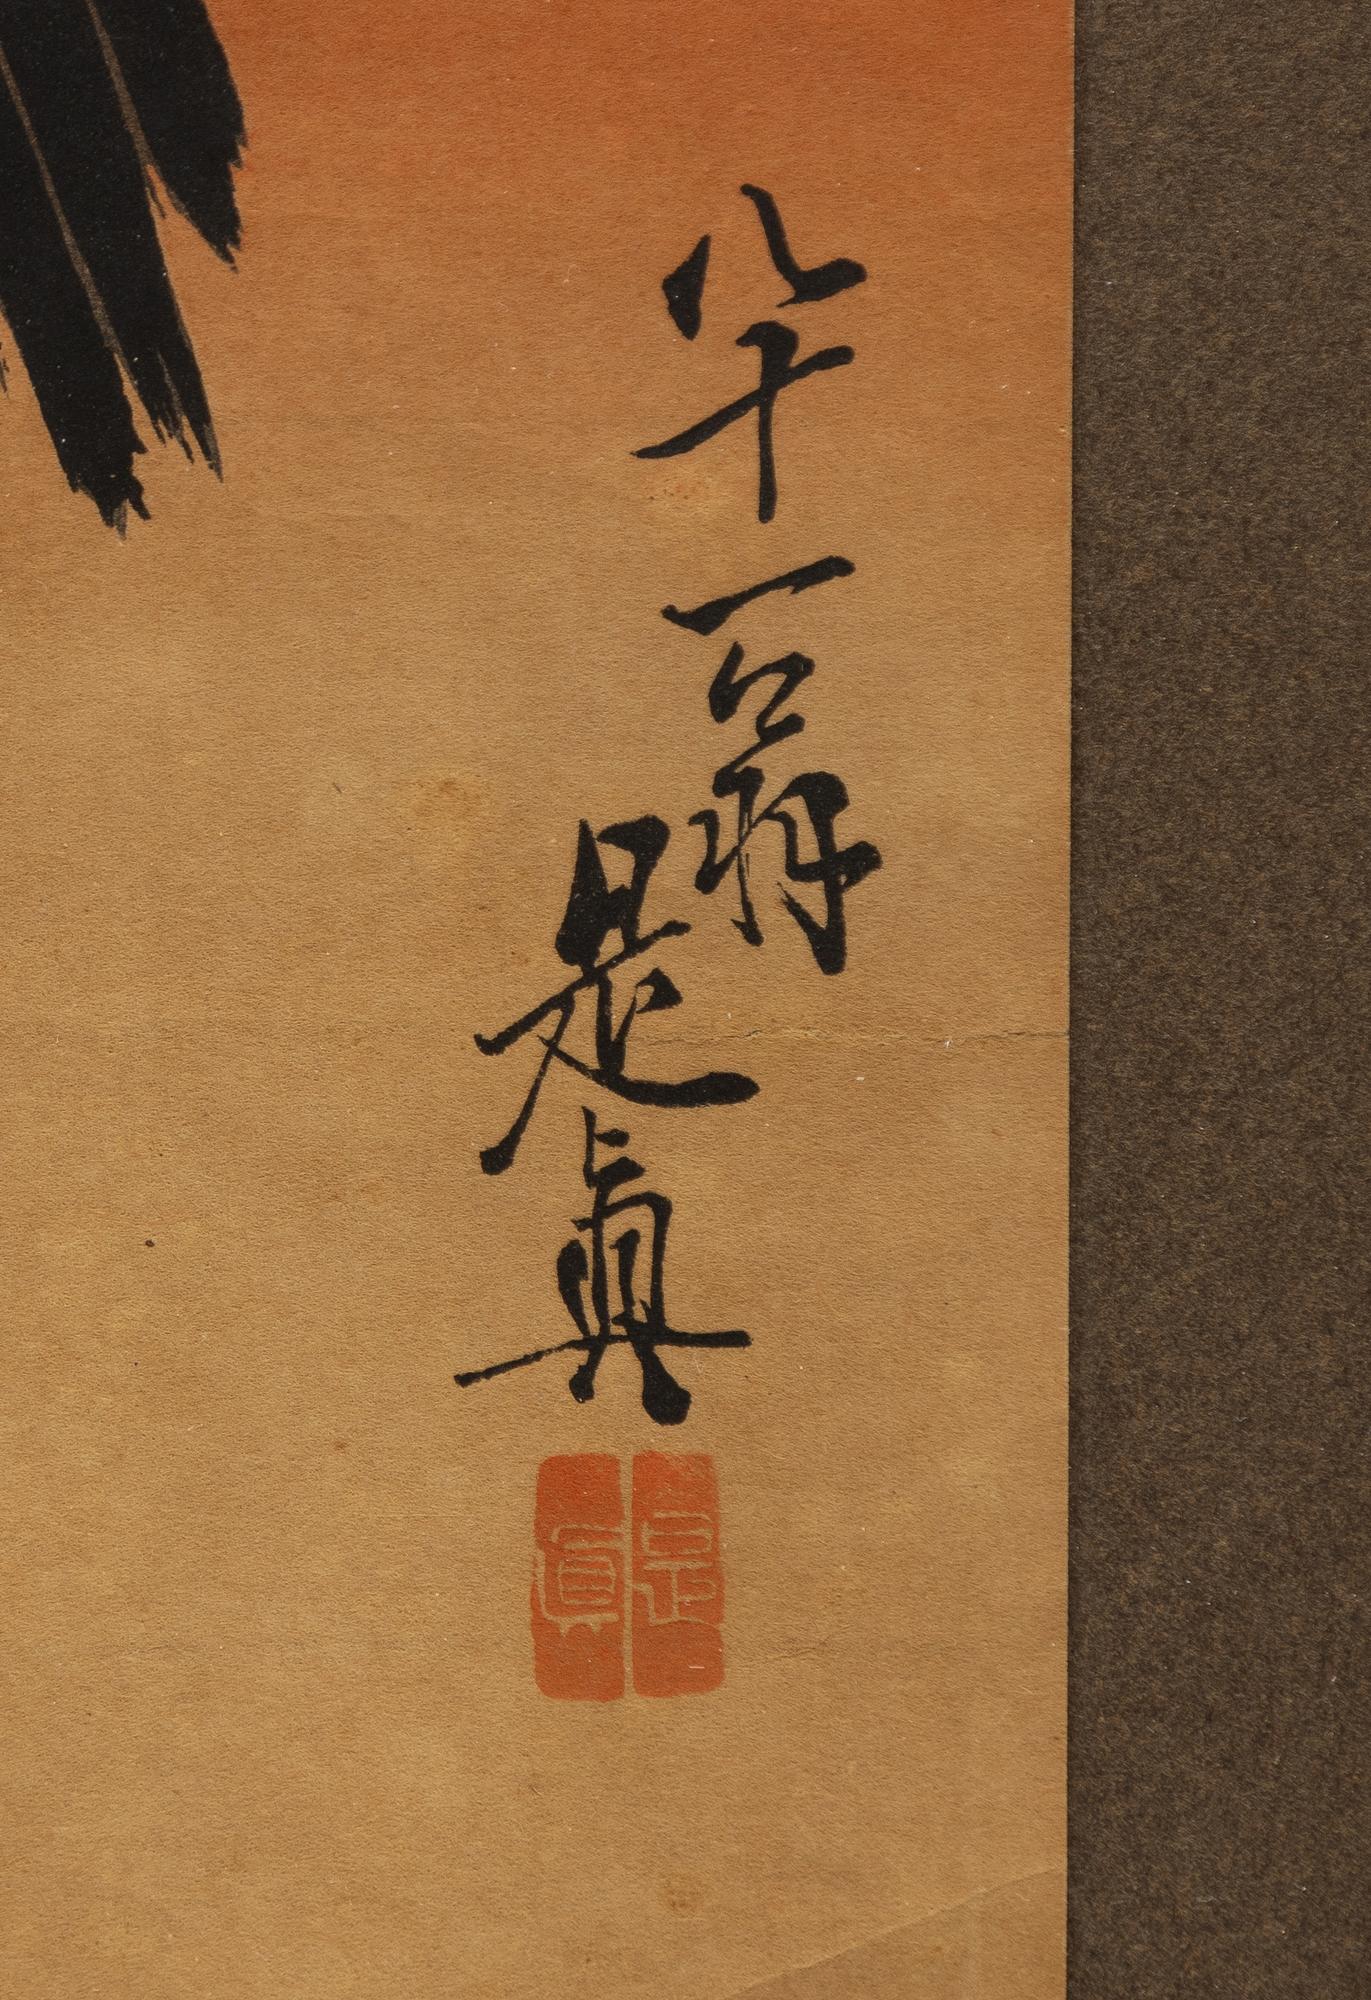 八十一翁
是真
是真